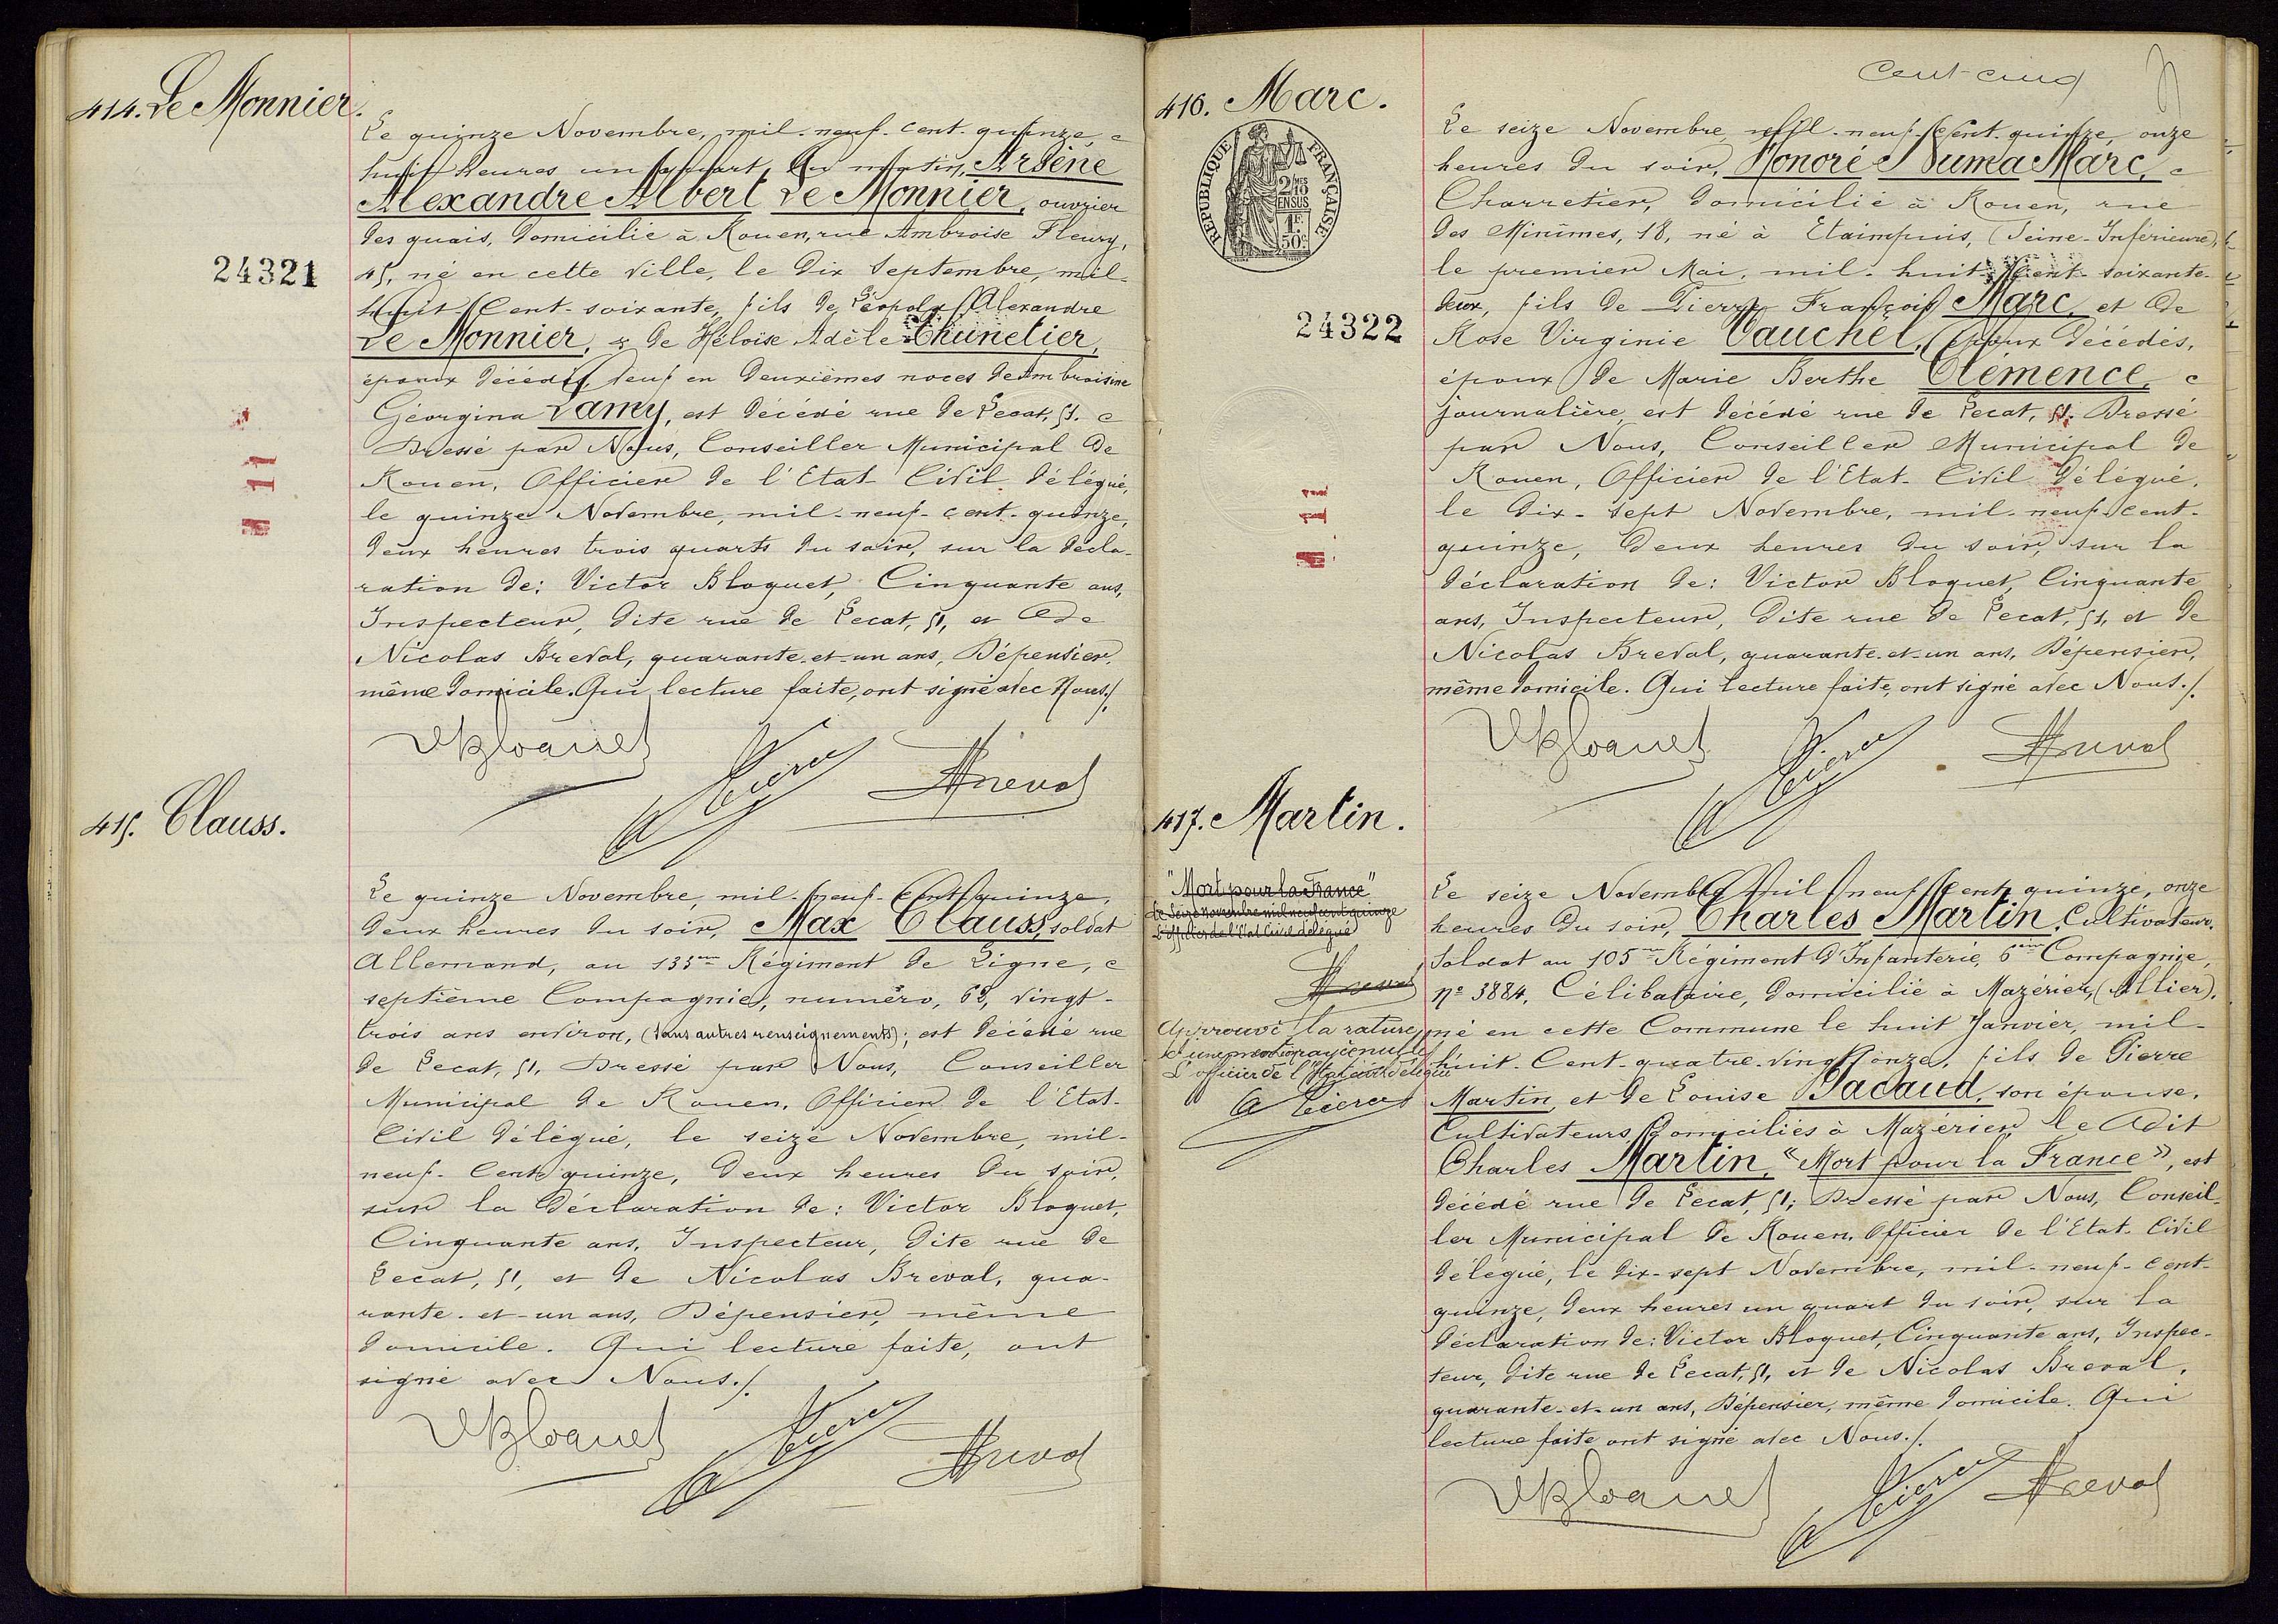 414. Le Monnier.
Le quinze Novembre, mil-neuf-cent-quinze,
huit heures un quart du matin, Arsène
Alexandre Albert Le Monnier, ouvrier
des quais, domicilié à Rouen, rue Ambroise Fleury,
45, né en cette ville, le dix Septembre, mil-
huit-Cent-soixante, fils de Léopold Alexandre
Le Monnier, & de Héloïse Adèle Thunelier,
époux décédés, veuf en deuxièmes noces de Ambroisine
Géorgina Lamy, est décédé rue de Lecat, 51.
Dressé par Nous, Conseiller Municipal de
Rouen, Officier de l'Etat-Civil délégué,
le quinze Novembre, mil-neuf-cent-quinze,
deux heures trois quarts du soir, sur la décla-
ration de: Victor Bloquet, Cinquante ans,
Inspecteur, dite rue de Lecat, 51, et de
Nicolas Breval, quarante-et-un ans, Dépensier,
même domicile. Qui lecture faite, ont signé avec Nous./.
24321
11
VBloquet
NBreval
415. Clauss.
Le quinze Novembre, mil-neuf-Cent-quinze,
deux heures du soir, Max Clauss, soldat
Allemand, au 133me Régiment de Ligne,
septième Compagnie, numéro, 62, vingt-
trois ans environ, (sans autres renseignements); est décédé rue
de Lecat, 51. Dressé par Nous, Conseiller
Municipal de Rouen, Officier de l'Etat-
Civil délégué, le seize Novembre, mil-
neuf-Cent-quinze, deux heures du soir,
sur la déclaration de: Victor Bloquet,
Cinquante ans, Inspecteur, dite rue de
Lecat, 51, et de Nicolas Breval, qua-
rante-et-un ans, Dépensier, même
domicile. Qui lecture faite, ont
signé avec Nous./.
VBloquet
NBreval
Cent-cinq
416. Marc.
RÉPUBLIQUE FRANÇAISE
2/10MES
EN SUS
1F.
50C
Le seize Novembre mil-neuf-Cent-quinze, onze
heures du soir, Honoré Numa Marc,
Charretier, domicilié à Rouen, rue
des Minimes, 18, né à Etaimpuis, (Seine-Inférieure),
le premier Mai, mil-huit-Cent-soixante-
deux, fils de Pierre François Marc, et de
Rose Virginie Vauchel, époux décédés,
époux de Marie Berthe Clémence,
journalière, est décédé rue de Lecat, 51. Dressé
par Nous, Conseiller Municipal de
Rouen, Officier de l'Etat-Civil délégué,
le dix-sept Novembre, mil-neuf-cent-
quinze, deux heures du soir, sur la
déclaration de: Victor Bloquet, Cinquante
ans, Inspecteur, dite rue de Lecat, 51, et de
Nicolas Breval, quarante-et-un ans, Dépensier,
même domicile. Qui lecture faite, ont signé avec Nous./.
24322
11
VBloquet
NBreval
417. Martin.
"Mort pour la France"
Le Seize novembre mil neuf cent quinze
L'officier de l'Etat Civil délégué
Approuvé la rature
d'une mention rayée nulle
L'officier de l'Etat civil délégué
Le seize Novembre mil-neuf-Cent-quinze, onze
heures du soir, Charles Martin, Cultivateur,
Soldat au 105me Régiment d'Infanterie, 6eme Compagnie,
no 3884, Célibataire, domicilié à Mazérier, (Allier),
né en cette Commune le huit Janvier, mil-
huit-Cent-quatre-vingt-onze, fils de Pierre
Martin et de Louise Pacaud, son épouse,
Cultivateurs, domiciliés à Mazérier, le dit
Charles Martin, "Mort pour la France", est
décédé rue de Lecat, 51; Dressé par Nous, Conseil-
ler Municipal de Rouen, Officier de l'Etat-Civil
délégué, le dix-sept Novembre, mil-neuf-Cent-
quinze, deux heures un quart du soir, sur la
déclaration de: Victor Bloquet, Cinquante ans, Inspec-
teur, dite rue de Lecat, 51, et de Nicolas Breval,
quarante-et-un ans, Dépensier, même domicile. Qui
lecture faite ont signé avec Nous./.
VBloquet
NBreval